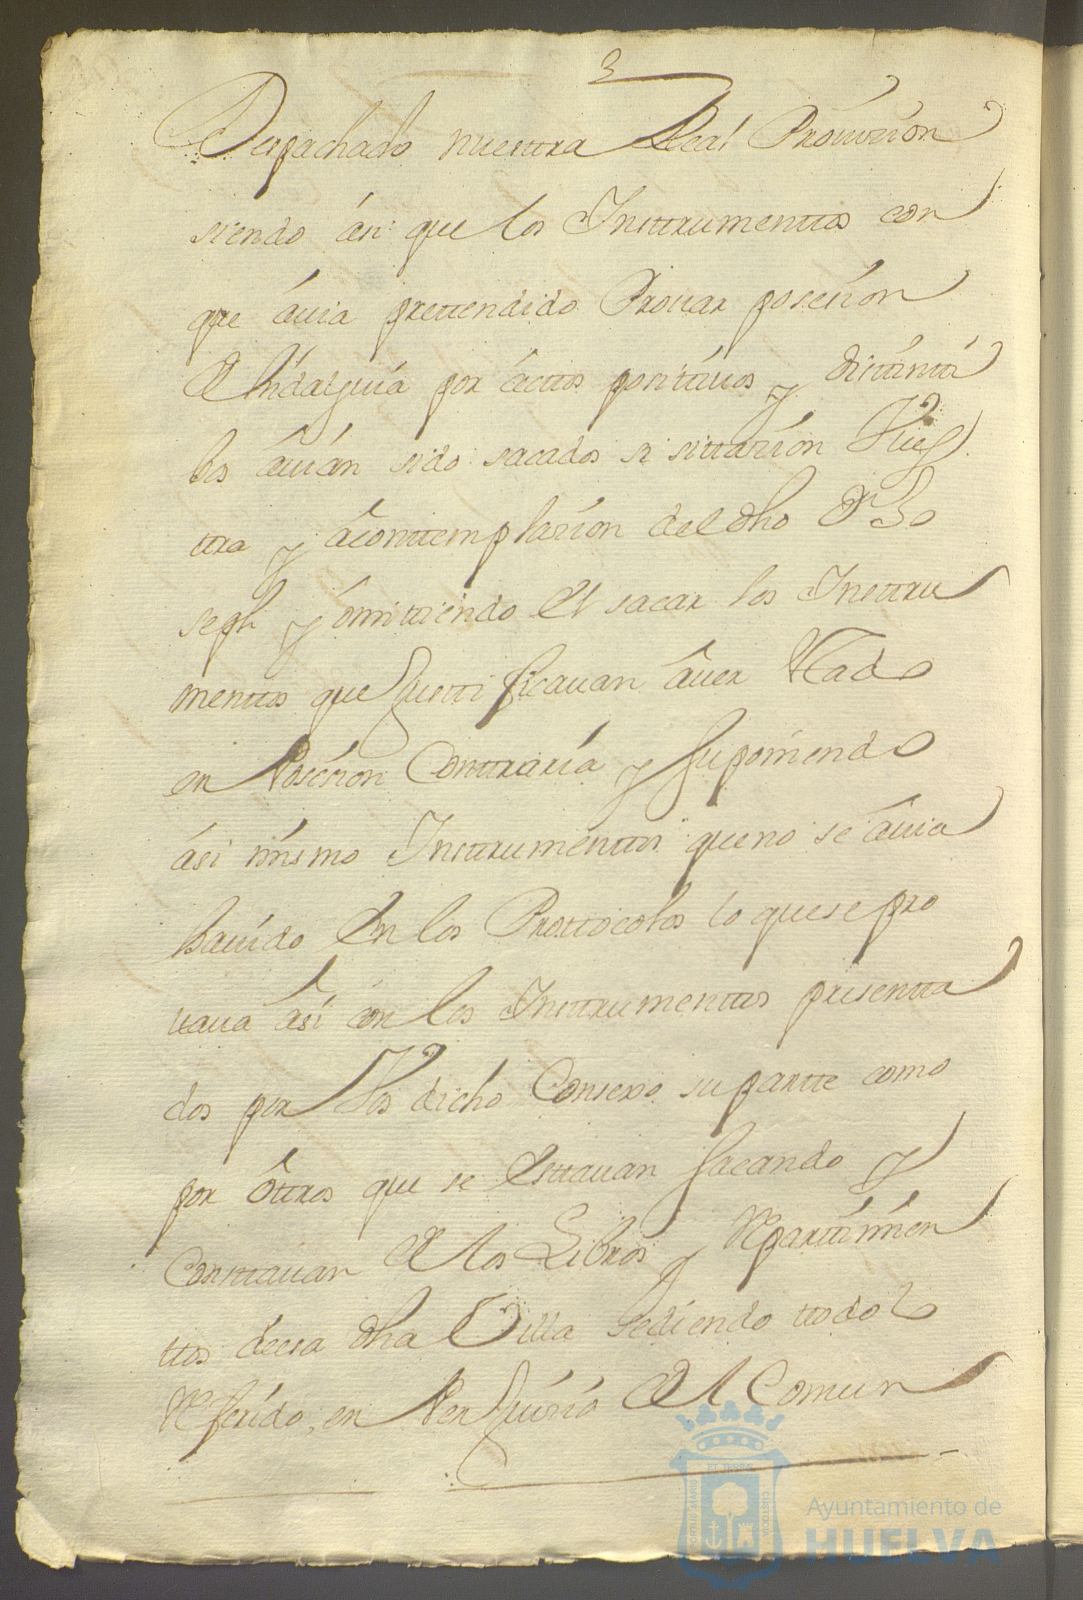 Despachado nuestra Real Prouission
siendo ási que los Instrumenttos con
que áuia prettendido Prouar posesíon
de hidalguía por ácttos positiuos y distintí
bos áuían sido sacados si sittazíon Vues
ttra y áconttemplazíon del dho Dn Jo
seph y omittiendo el sacar los Insttru
menttos que Justtificauan áuer estado
en Posésion Conttraría y suponiendo
ási mísmo Insttrumenttos que no se áuia
hauído en los Prottocolos lo que se pro
uaua ási cón los Insttrumenttos presentta
dos por Vos dicho Consexo su partte como
por óttros que se esttauan sacando y
Consttauan de los Libros y Repartimíen
ttos de esa dha Villa sediendo ttodo lo
Referído, en Perjuizío del Comun
Ayuntamiento de
HUELVA